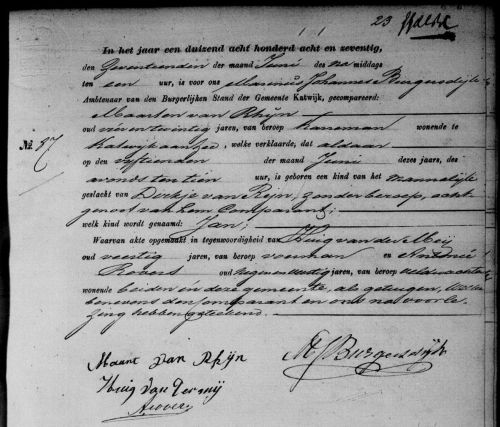 23
In het jaar een duizend acht honderd acht en zeventig,
den Zeventienden der maand Juni des na middags
ten een uur, is voor ons Marinus Johannes Burgersdijk
Ambtenaar van den Burgerlijken Stand der Gemeente Katwijk, gecompareerd:
Maarten van Rhijn
oud jaren, van beroep wonende te
Katwijk aan zee, welke verklaarde, dat aldaar
op den vijftienden der maand Junij dezes jaars, des
avonds ten tien uur, is geboren een kind van het mannelijke
geslacht van Dirkje van Rijn, zonder beroep, echt
genoot van hem Comparant;
welk kind wordt genaamd: Jan;
Waarvan akte opgemaakt in tegenwoordigheid van Huig van der Meij
oud veertig jaren, van beroep voerman en
oud jaren, van beroep veldwachter
wonende beiden in deze gemeente, als getuigen, die
benevens den comparant en ons na voorle
zing hebben geteekend.
No. 87
Maart van Rhijn
Huig van der mij
MJBurgersdijk